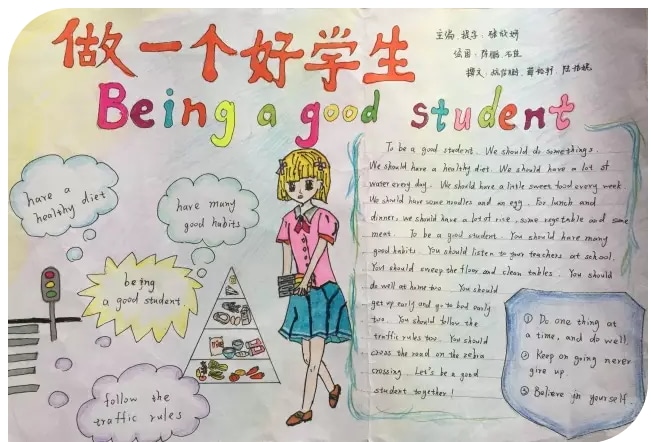 做一个好学生
主编
绘图
撰文
Being a good student
have a
healthy diet
have many
good habits
being
a good student
follow the
traffic rules
To be a good student. We should do somethings.
We should have a healthy diet. We should have a lot of
water every day. We should have a little sweet food every week.
We should have some noodles and an egg. For lunch and
dinner, we should have a lot of rice, some vegetable and some
meat. To be a good student. You should have many
good habits. You should listen to your teachers at school.
You should sweep the floor and clean tables. You should
do well at home too. You should
get up early and go to bed early
too. You should follow the
traffic rules too. You should
cross the road on the zebra
crossing. Let's be a good
student together!
① Do one thing at
a time, and do well.
② Keep on going never
give up.
③ Believe in yourself.